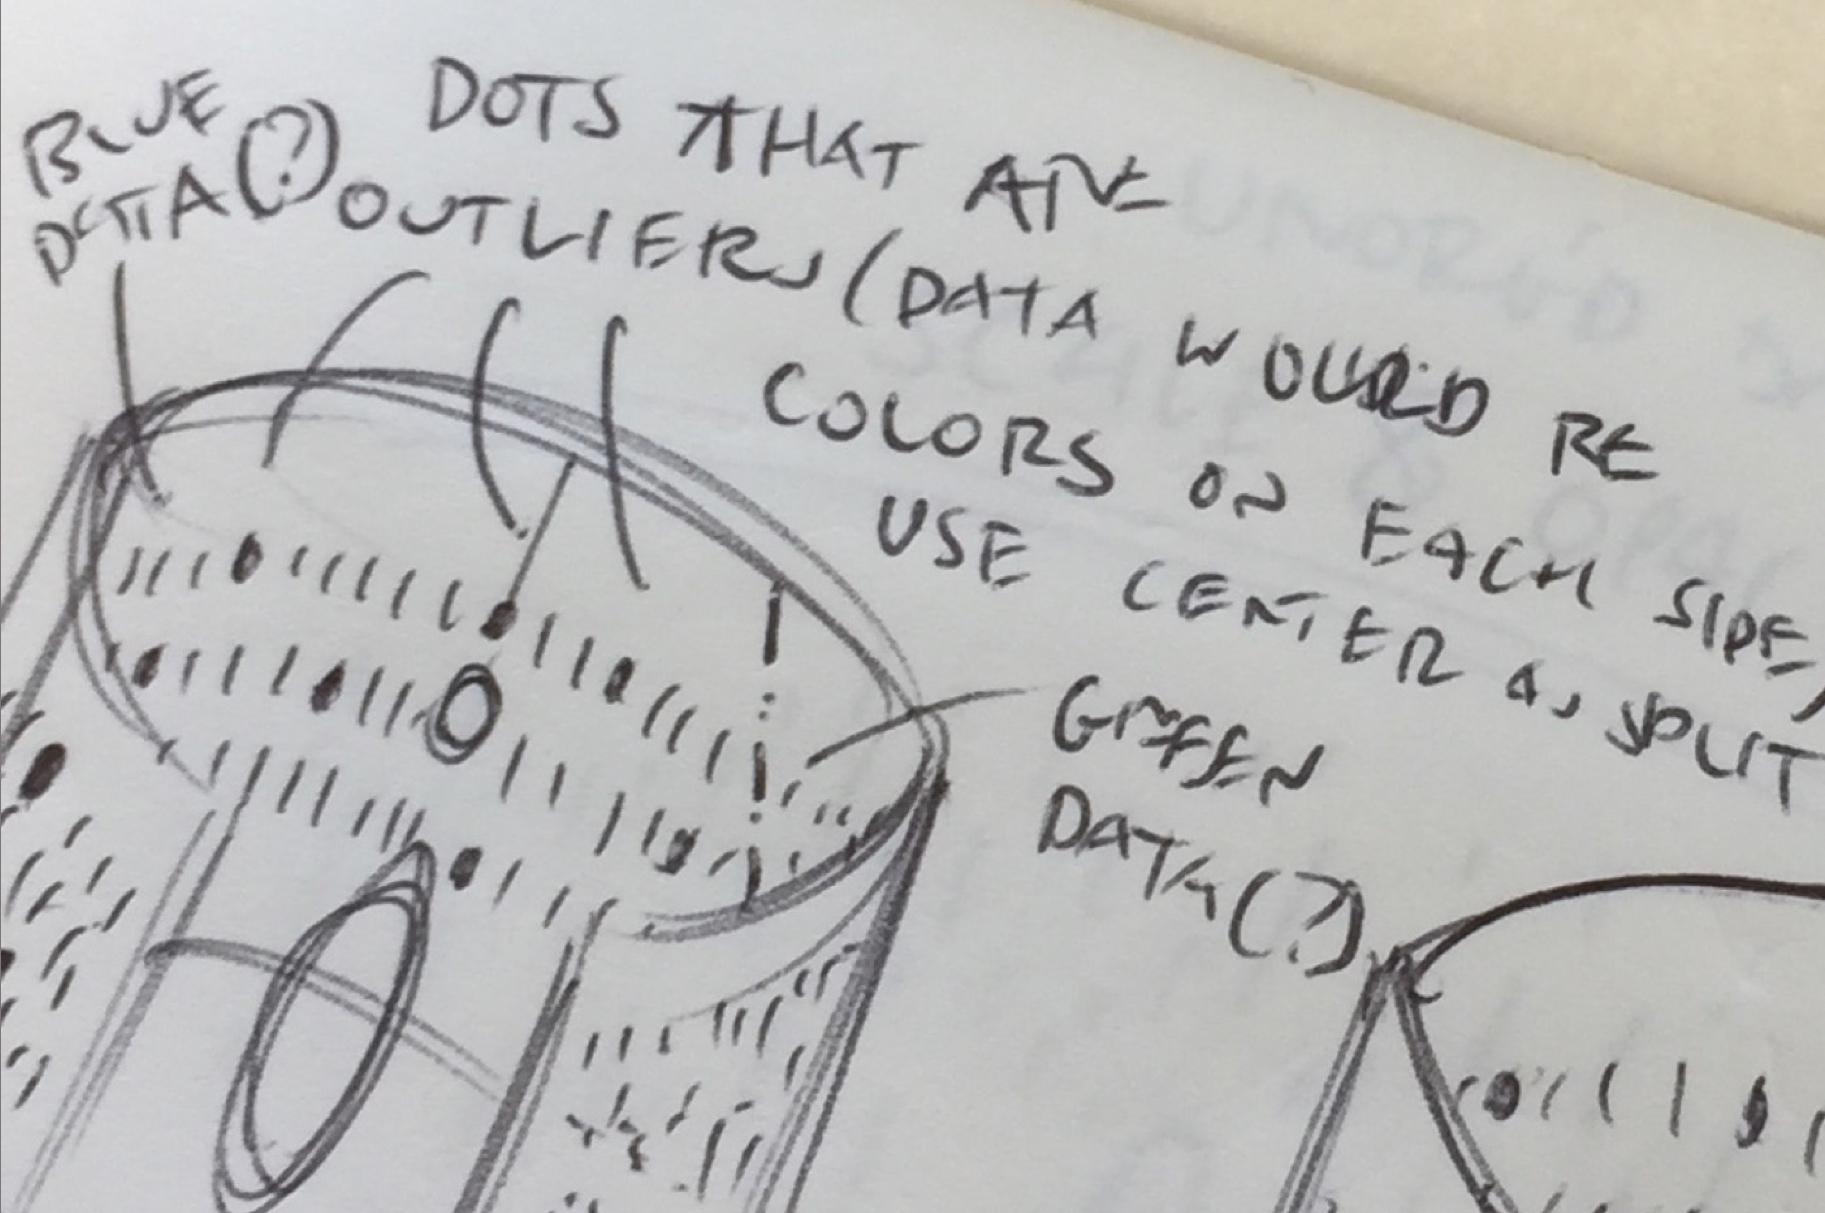 BLUE
DATA (?)
DOTS THAT ARE
OUTLIERS (DATA WOULD BE
COLORS ON EACH SIDE,
USE CENTER AS SPLIT
GREEN
DATA (?)